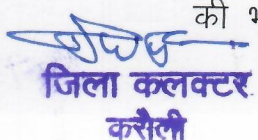 की
जिला कलक्टर
करौली